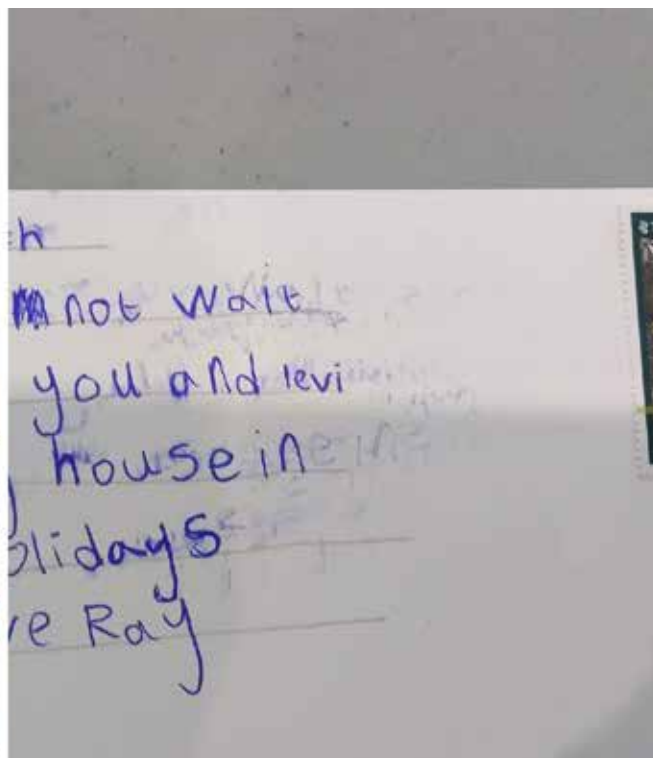 h
not wait
you and levi
house in
olidays
e Ray